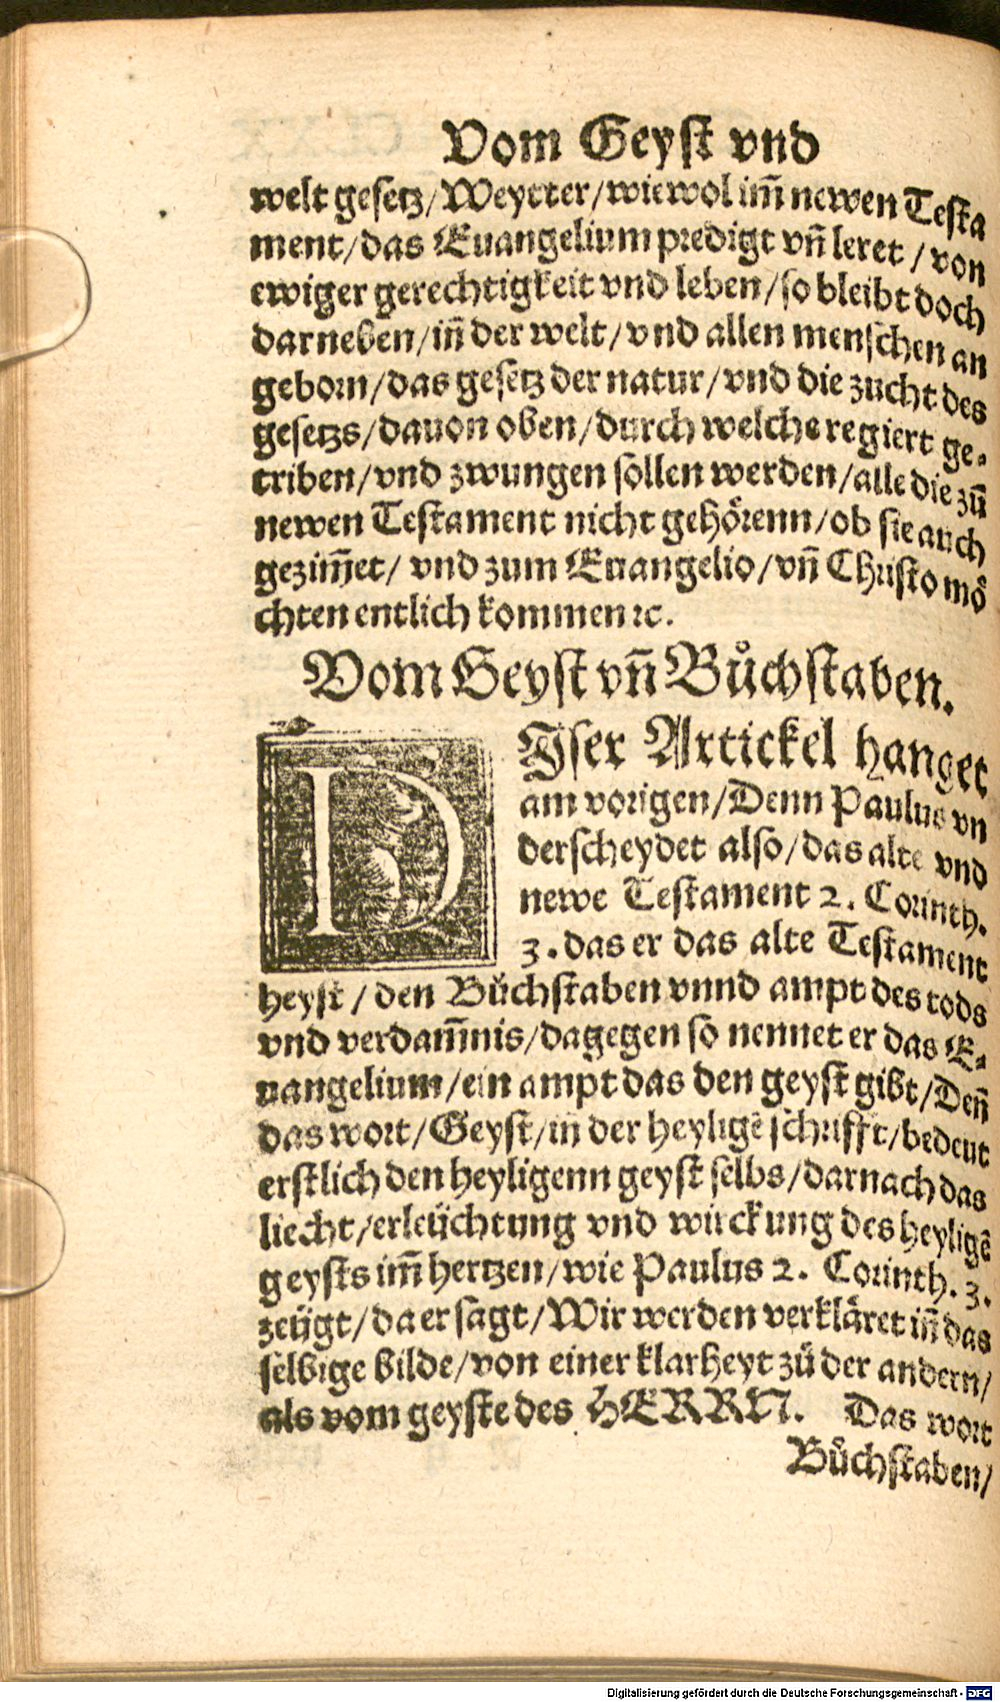 Vom Geyst vnd
welt gesetz/Weytter/wiewol im̃ newen Testa
ment/das Euangelium predigt vñ leret/von
ewiger gerechtigkeit vnd leben/so bleibt doch
darneben/iñ der welt/vnd allen menschen an
geborn/das gesetz der natur/vnd die zucht des
gesetzs/dauon oben/durch welche regiert ge-
triben/vnd zwungen sollen werden/alle die zū
newen Testament nicht gehörenn/ob sie auch
gezim̃et/ vnd zum Euangelio/vñ Christo mö
chten entlich kommen ꝛc.
Vom Geyst vñ Bůchstaben.
DIser Artickel hanget
am vorigen/Denn Paulus vn
derscheydet also/das alte vnd
newe Testament 2. Corinth.
3. das er das alte Testament
heyst/den Bůchstaben vnnd ampt des tods
vnd verdam̃nis/dagegen so nennet er das E-
uangelium/ein ampt das den geyst gibt/Deñ
das wort/Geyst/in der heyligē schrifft/bedeut
erstlich den heyligenn geyst selbs/darnach das
liecht/erleüchtung vnd wirckung des heyligē
geysts im̃ hertzen/wie Paulus 2. Corinth. 3.
zeügt/da er sagt/Wir werden verkläret iñ das
selbige bilde/von einer klarheyt zů der andern/
als vom geyste des HERRN. Das wort
Bůchstaben/
Digitalisierung gefördert durch die Deutsche Forschungsgemeinschaft - DFG